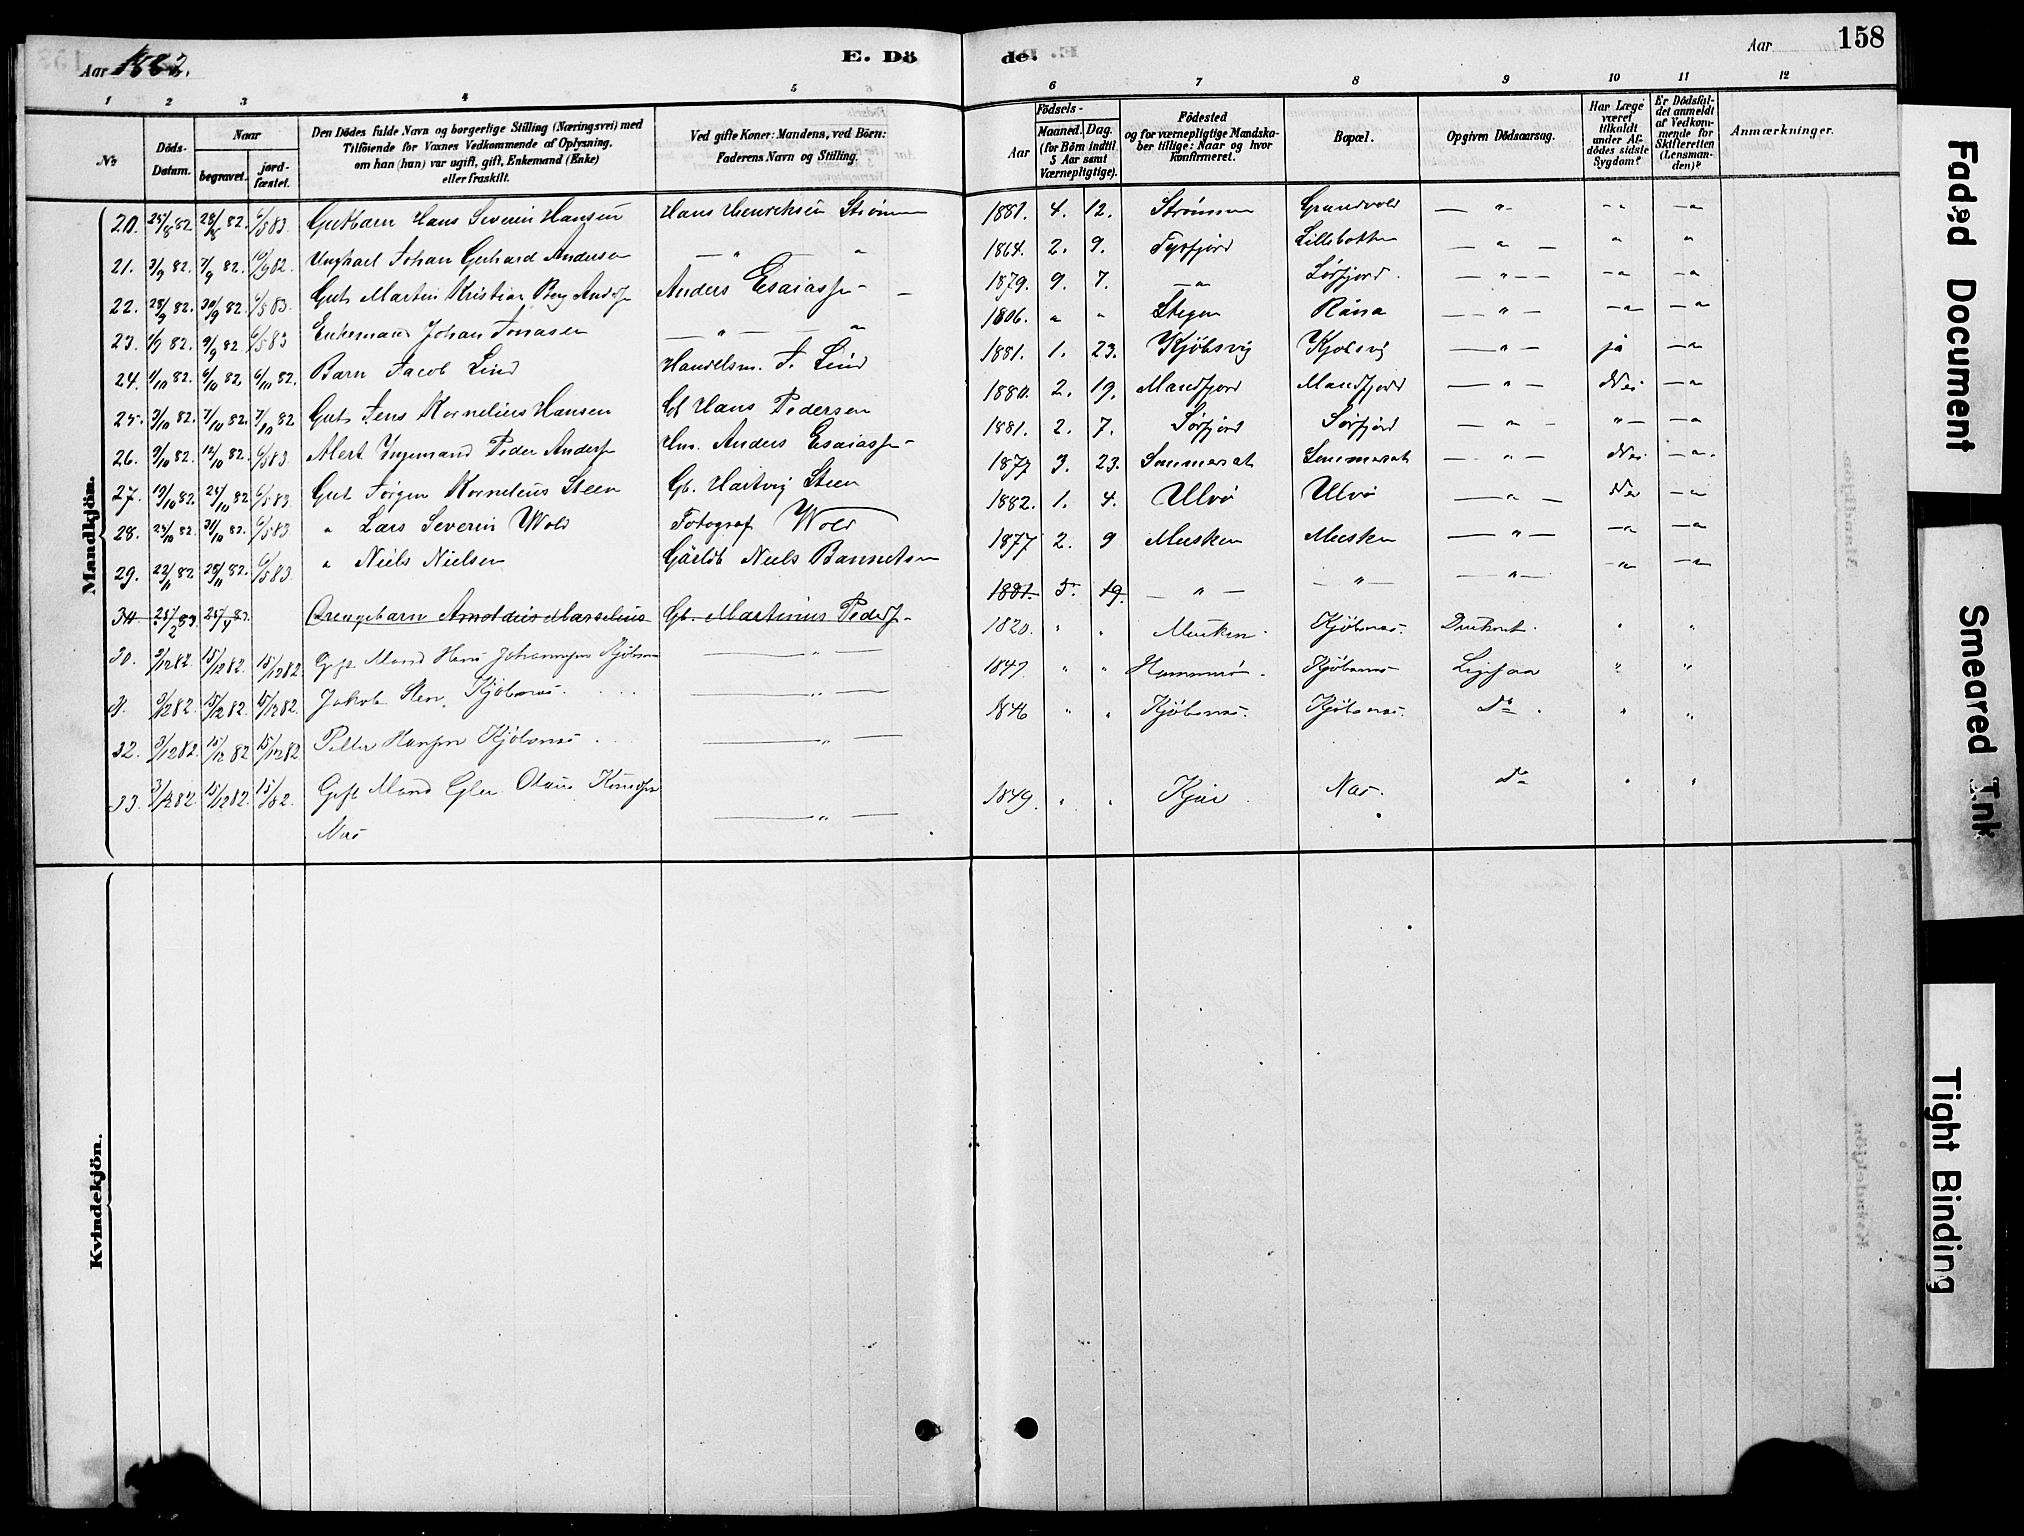 Aar 1882.
E. Dö
de.
Aar
158
1 2 3 4 5 6 7 8 9 10 11 12
No
Döds-Datum.
Naar
begravet.
jord-fæstet.
Den Dödes fulde Navn og borgerlige Stilling (Næringsvei) med
Tilföiende for Voxnes Vedkommende af Oplysning,
om han (hun) var ugift, gift, Enkemand (Enke)
eller fraskilt.
Ved gifte Koner: Mandens, ved Börn:
Faderens Navn og Stilling.
Födsels-
Aar
Maaned. Dag.
(for Börn indtil
5 Aar samt
Værnepligtige).
Födested
og for værnepligtige Mandska-
ber tillige: Naar og hvor
konfirmeret.
Bopæl.
Opgiven Dödsaarsag.
Har Læge
været
tilkaldt
under Af-
dödes sidste
Sygdom?
Er Dödsfal-
det anmeldt
af Vedkom-
mende for
Skifteretten
(Lensman-
den)?
Anmærkninger.
Mandkjön.
20. 25/8 82. 28/8 82. 6/5 83. Gutbarn Hans Severin Hansen Hans Henriksen Strømmen 1881. 4. 12. Strømmen Grundvold — " — " — "
21. 3/9 82. 7/9 82. 10/9 82. Ungkarl Johan Gerhard Andersen — " — " 1864. 2. 9. Tysfjord Lillebotten — " — " "
22. 28/9 82. 30/9 82. 6/5 83. Gut Martin Kristian Berg Anders Esaiass 1879. 9. 7. — " Sørfjord. — " — — " — "
23. 1/9 82. 9/9 82. 6/5 83 Enkemand Johan Jonasen — " — — " 1806. " " Stegen Råna — " — — " — — "
24. 1/10 82. 6/10 82. 6/10 82. Barn Jacob Lind Handelsm. F. Lind 1881. 1. 23. Kjøbsvig Kjøbsvig — " — ja — "
25. 3/10 82. 7/10 82. 7/10 82 Gut Jens Kornelius Hansen Gb Hans Pedersen 1880. 2. 19. Mandfjord Mandfjord — " — Nei — "
26. 9/10 82. 12/10 82. 6/5 83. Ingemand Peder Anders Hm. Anders Esaiass 1881. 2. 7. Sørfjord Sørfjord — " — " — — "
27. 19/10 82. 24/10 82. 6/5 83. Gut Jørgen Kornelius Steen Gb. Hartvig Steen 1877 3. 23. Sommerset Sommerset — " — Nei — "
28. 25/10 82. 31/10 82. 6/5 83 " Lars Severin Wold Fotograf Wold 1882. 1. 4. Ulvø Ulvø — " — Nei — "
29. 22/11 82. 28/11 82. 6/5 83. " Niels Nielsen Niels 1877 2. 9 Musken Musken — " — — " — "
Drengebarn Arnoldus Marselius Gb. Martinus Peders 1881. 5. 19. — " — — " — — " — — " — "
30. 3/12 82. 15/12 82. 15/12 82 Gift Mand Hans Johannesen Kjøbsnes — " — 1820. " " Musken. Kjøbsnes. Druknet. " "
31. 3/12 82. 15/12 82. 15/12 82. Jakob Sten. Kjøbsnes. — " — 1847. " " Hammerø. Kjøbsnes " "
32. 3/12 82. 15/12 82 15/12 82 Petter Hansen Kjøbsnes — " — 1846 " " Kjøbsnes. Kjøbsnes. Do. " "
33. 3/12 82. 15/12 82. 15/12 82. Gift Mand Olaus
Næs — " — 1849. " " Næs. Do " "
Kvindekjön.
Faded Document
Smeared Ink
Tight Binding